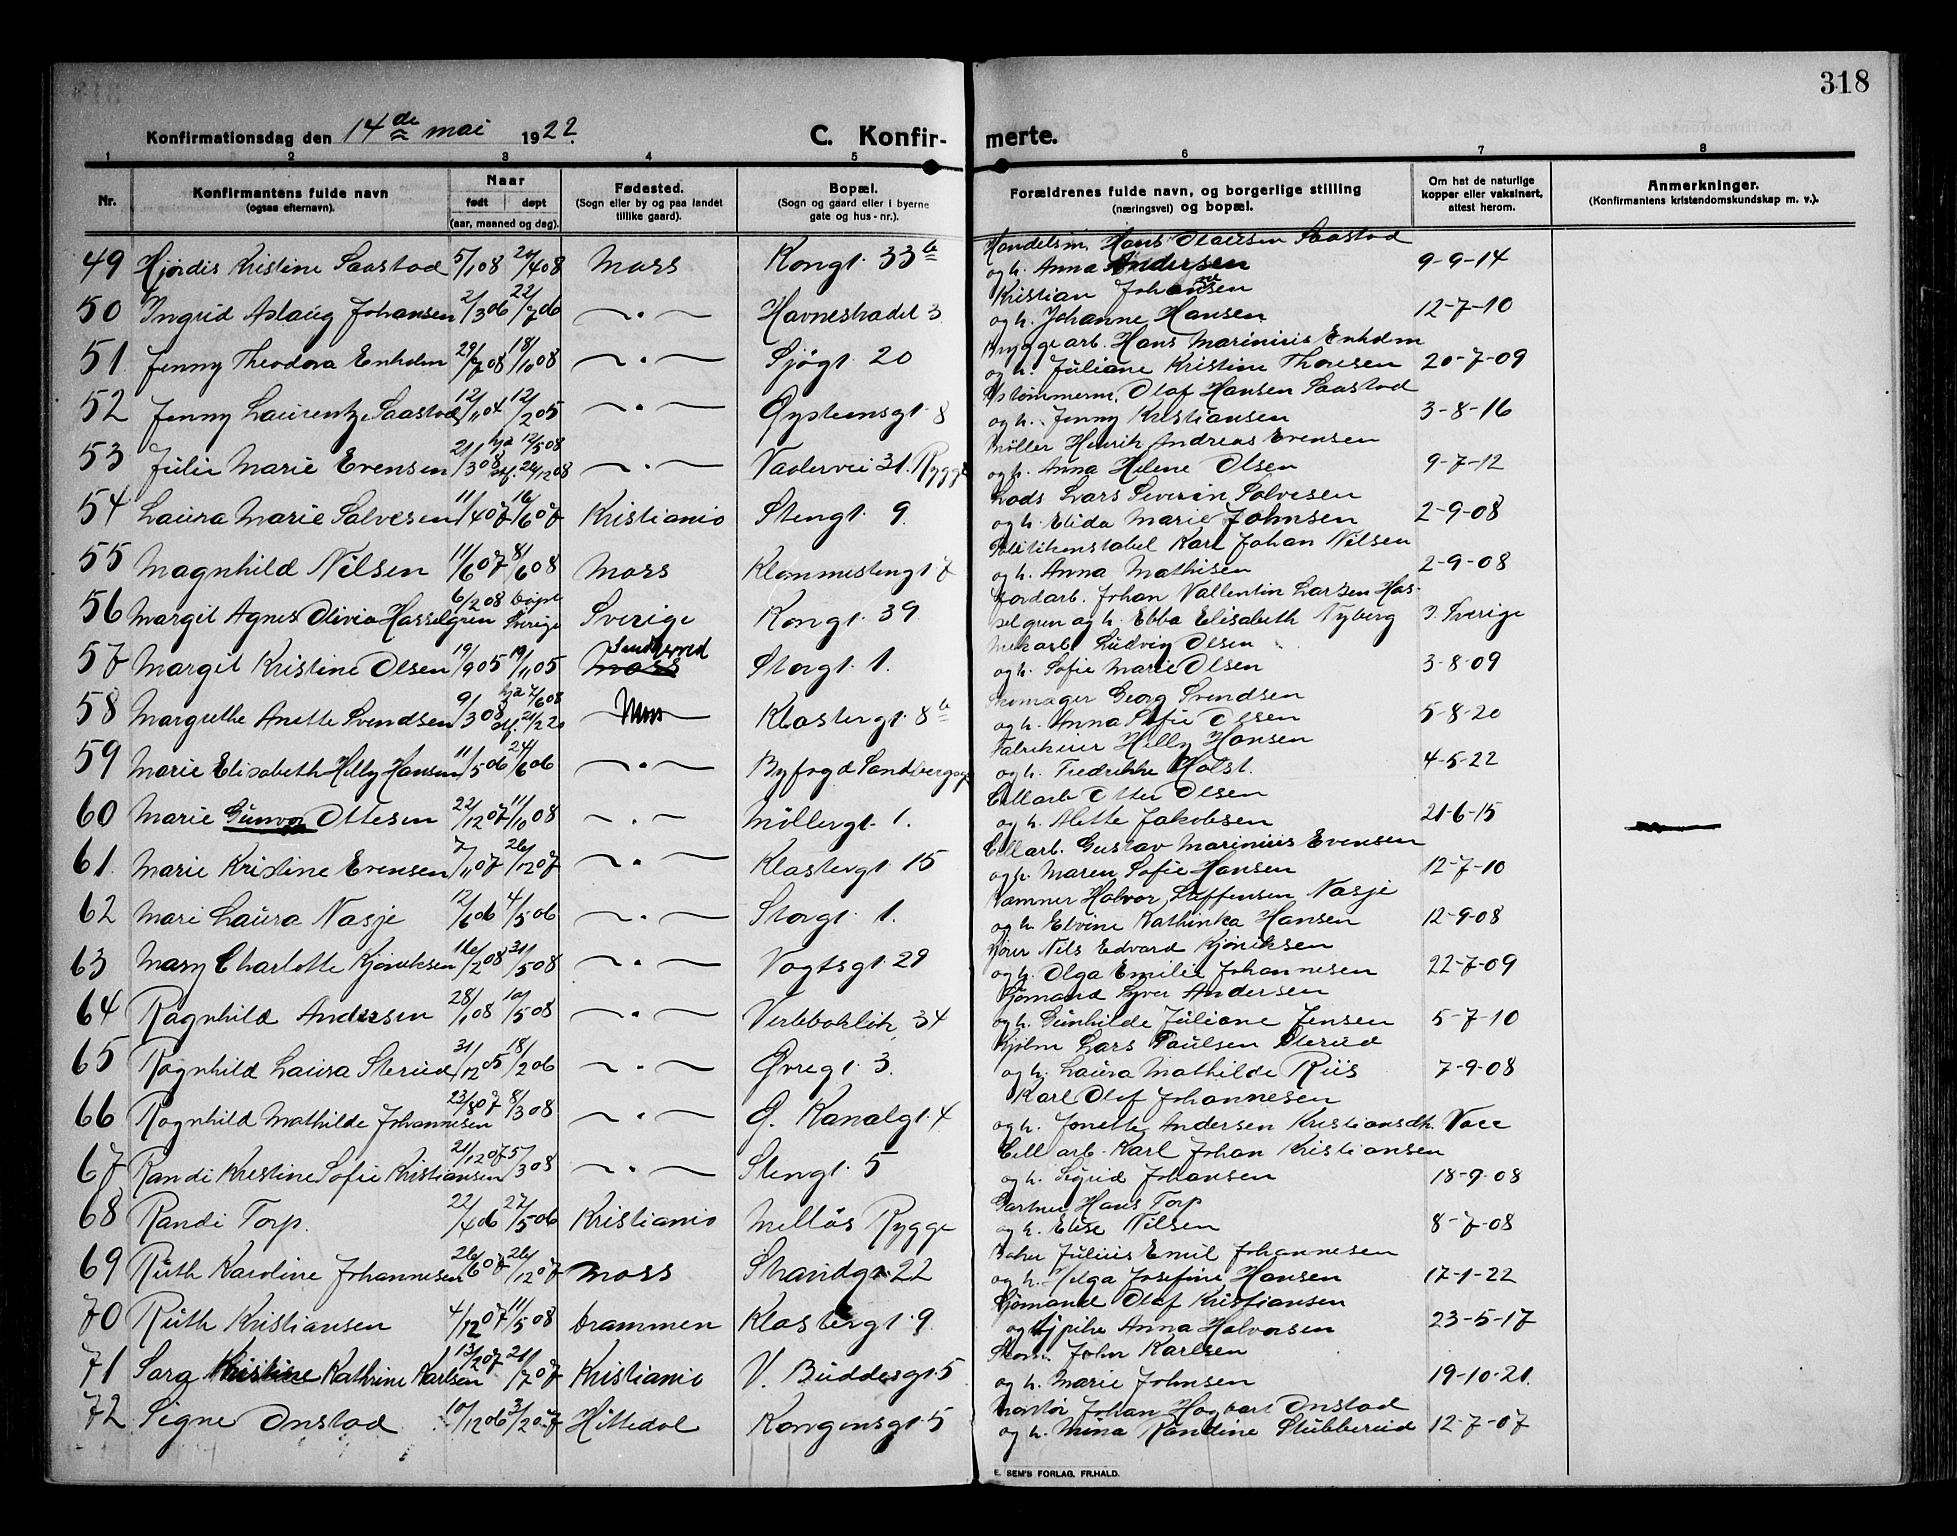 318
Konfirmationsdag den 14de mai 1922. C. Konfirmerte.
1 2 3 4 5 6 7 8
Nr. Konfirmantens fulde navn (ogsaa efternavn). Naar født døpt (aar, maaned og dag). Fødested. (Sogn eller by og paa landet tillike gaard). Bopæl. (Sogn og gaard eller i byerne gate og hus-nr.). Forældrenes fulde navn, og borgerlige stilling (næringsvei) og bopæl. Om hat de naturlige kopper eller vaksinert, attest herom. Anmerkninger. (Konfirmantens kristendomskundskap m. v.).
Handelsm. Hans Olausen Saastad
49 Hjørdis Kristine Saastad 5/1 08 20/4 08 Moss Kongt. 33 b og h. Anna Andersen 9-9-14
Kristian Johansen
50 Ingrid Aslaug Johansen 2/3 06 22/7 06 —〃— Havneshadel 3 og h. Johanne Hansen 12-7-10
Bryggearb. Hans Marinius Enholm
51 Jenny Theodora Enholm 29/7 08 18/10 08 —〃— Sjøgt. 20 og h. Juliane Kristine Thoresen 20-7-09
Olaf Hansen Saastad
52 Jenny Laurentze Saastad 12/11 04 12/2 05 —〃— Øysteinsgt. 8 og h. Jenny Kristiansen 3-8-16
Møller Henrik Andreas Evensen
53 Julie Marie Evensen 21/3 08 hja 12/5 08 24/12 08 —〃— Vaalervei 31. Rygge og h. Anna Helene Olsen 9-7-12
Lods Lars Severin Salvesen
54 Laura Marie Salvesen 11/4 07 16/6 07 Kristiania Stengt. 9. og h. Elida Marie Johnsen 2-9-08
Politikonstabel Karl Johan Nilsen
55 Magnhild Nilsen 11/6 07 8/6 08 Moss Klommestengt 7 og h. Anna Mathisen 2-9-08
Jordarb. Johan Vallentin Larsen Has-
56 Margit Agnes Olivia Hasselgren 6/2 08 døpt Sverige Sverige Kongt. 39 selgren og h. Ebba Elisabeth Nyberg 3. Sverige
Ludvig Olsen
57 Margit Kristine Olsen 19/9 05 19/11 05 Moss Storgt. 1. og h. Sofie Marie Olsen 3-8-09
Skomager Georg Svendsen
58 Margrethe Anette Svendsen 9/3 08 hja 7/6 08 21/2 20 Moss Klostergt. 8 b og h. Anna Sofie Olsen 5-8-20
Fabrikeier Hilly Hansen
59 Marie Elisabeth Hilly Hansen 11/5 06 24/6 06 —〃— Byfogd Sandbergsgt og h. Fredrikke Holst. 4-5-22
Cellarb Otter Olsen
60 Marie Gunvor Ottesen 22/12 07 11/10 08 —〃— Møllergt. 1. og h. Alette Jakobsen 21-6-15
Cellarb. Gustav Marinius Evensen
61. Marie Kristine Evensen 7/11 07 26/12 07 —〃— Klostergt 15 og h. Maren Sofie Hansen 12-7-10
Halvor Steffensen Nasje
62 Mari Laura Nasje 12/6 06 4/5 06 —〃— Storgt. 1. og h. Elvine Kathinka Hansen 12-9-08
Nils Edvard Kjøniksen
63 Mary Charlotte Kjøniksen 16/2 08 31/5 08 —〃— Vogtsgt. 29 og h. Olga Emilie Johannesen 22-7-09
Sjømand Syver Andersen
64 Ragnhild Andersen 28/1 08 10/5 08 —〃— Verlebaklik 34 og h. Gunhilde Juliane Jensen 5-7-10
Lars Paulsen Sterud
65 Ragnhild Laura Sterud 31/12 05 18/2 06 —〃— Øvregt. 3. og h. Laura Mathilde Riis 7-9-08
Karl Olaf Johannesen
66 Ragnhild Mathilde Johannesen 23/8 07 8/3 08 —〃— G. Kanalgt. 4 og h. Jonette Andersen Kristiansdh. Vacc
Cellarb. Karl Johan Kristiansen
67 Randi Kristine Sofie Kristiansen 21/12 07 5/3 08 —〃— Stengt. 5 og h. Sigrid Johansen 18-9-08
Gartner Hans Torp
68 Randi Torp. 22/4 06 27/5 06 Kristiania Melløs Rygge og h. Elise Nilsen 8-7-08
Baker Julius Emil Johannesen
69 Ruth Karoline Johannesen 26/6 07 26/12 07 Moss Strandgt. 22 og h. Helga Josefine Hansen 17-1-22
Sjømand Olaf Kristiansen
70 Ruth Kristiansen 4/12 07 11/5 08 Drammen Klostergt. 9. og pike Anna Halvorsen 23-5-17
John Karlsen
71 Sara Kristine Kathrine Karlsen 13/2 07 21/7 07 Kristiania V. Buddesgt. 5 og h. Marie Johnsen 19-10-21.
Johan Hagbart Onstad
72 Signe Onstad 10/12 06 3/2 07 Hittedal Kongensgt. 5 og h. Mina Randine Stubberud 12-7-07
E. SEM'S FORLAG, FR.HALD.